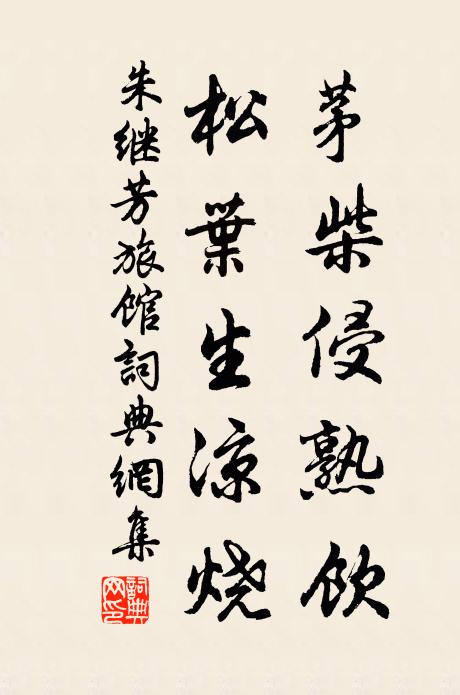 茅柴侵熟饮
松葉生涼烧
朱继芳旅馆詞典網集
詞典网印